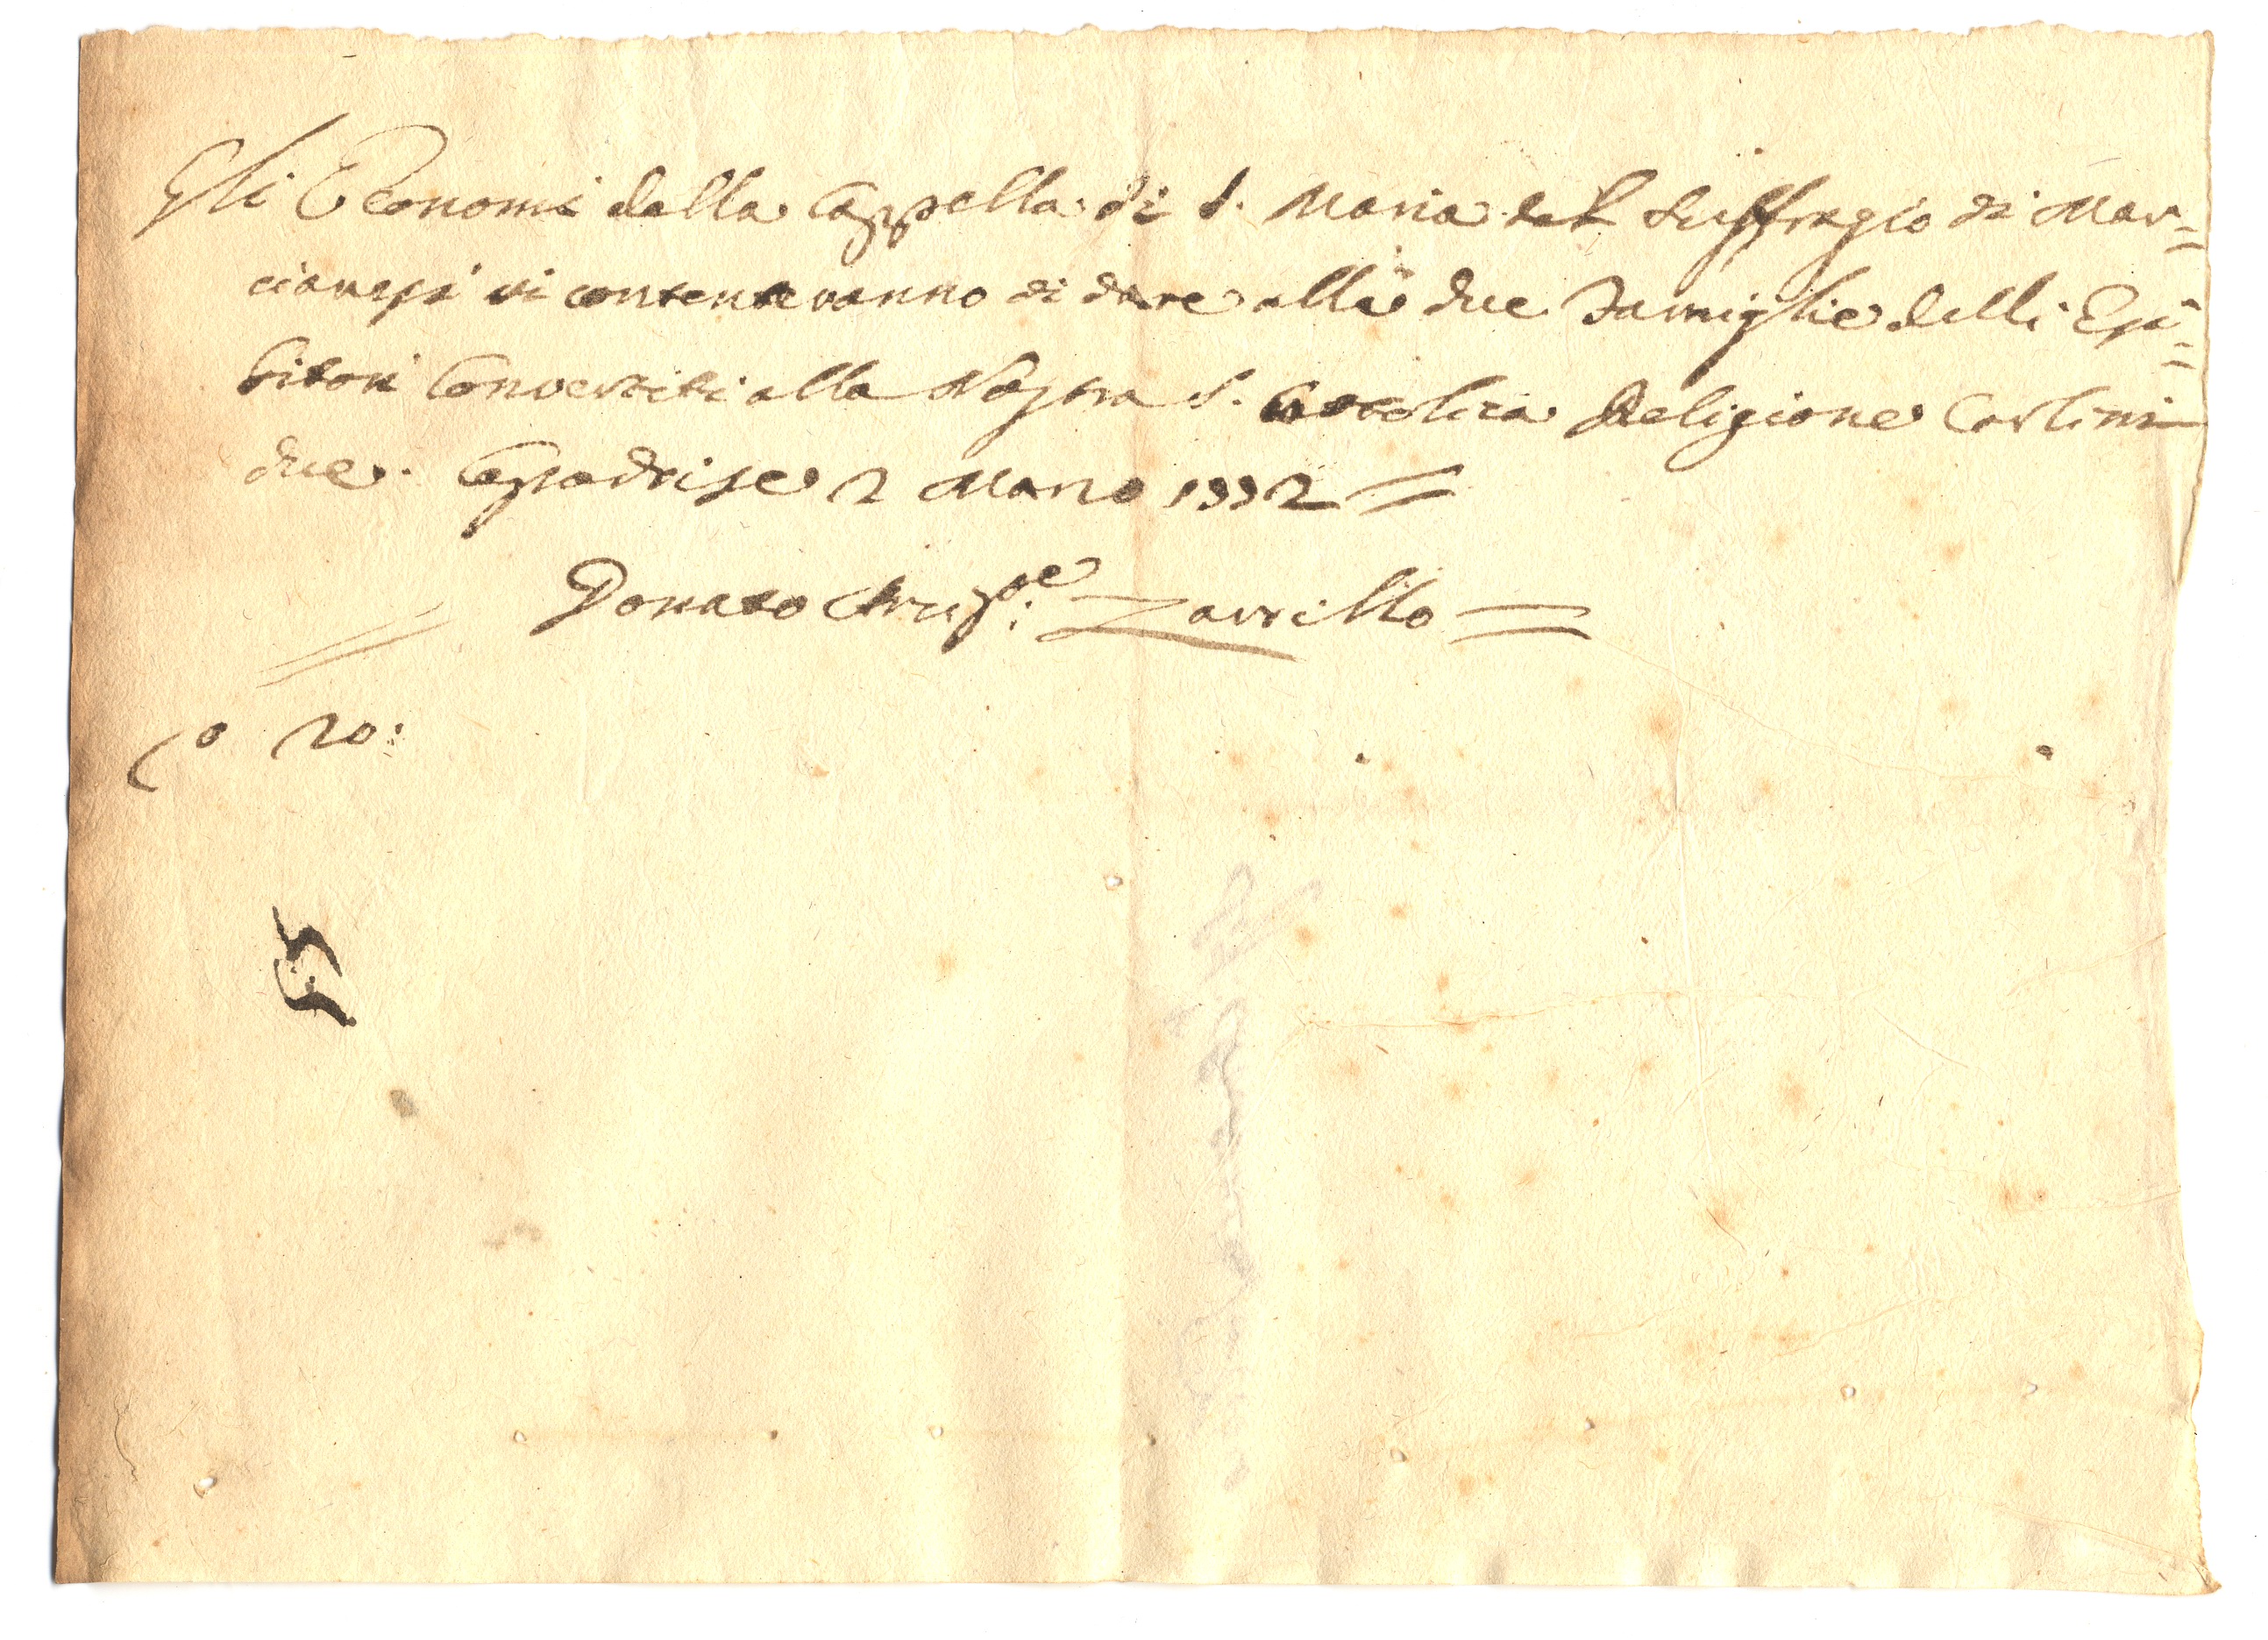 Gli Economi della Cappella di S. Maria del Suffragio di Mar=
cianesi si contenteranno di dare alle due Famiglie delli Esi=
bitori Convertiti alla Nostra S. Cattolica Religione Carlini
due. Capodrise 2 Marzo 1772 =
Donato Arcip.e Zarrillo =
C.o 20: